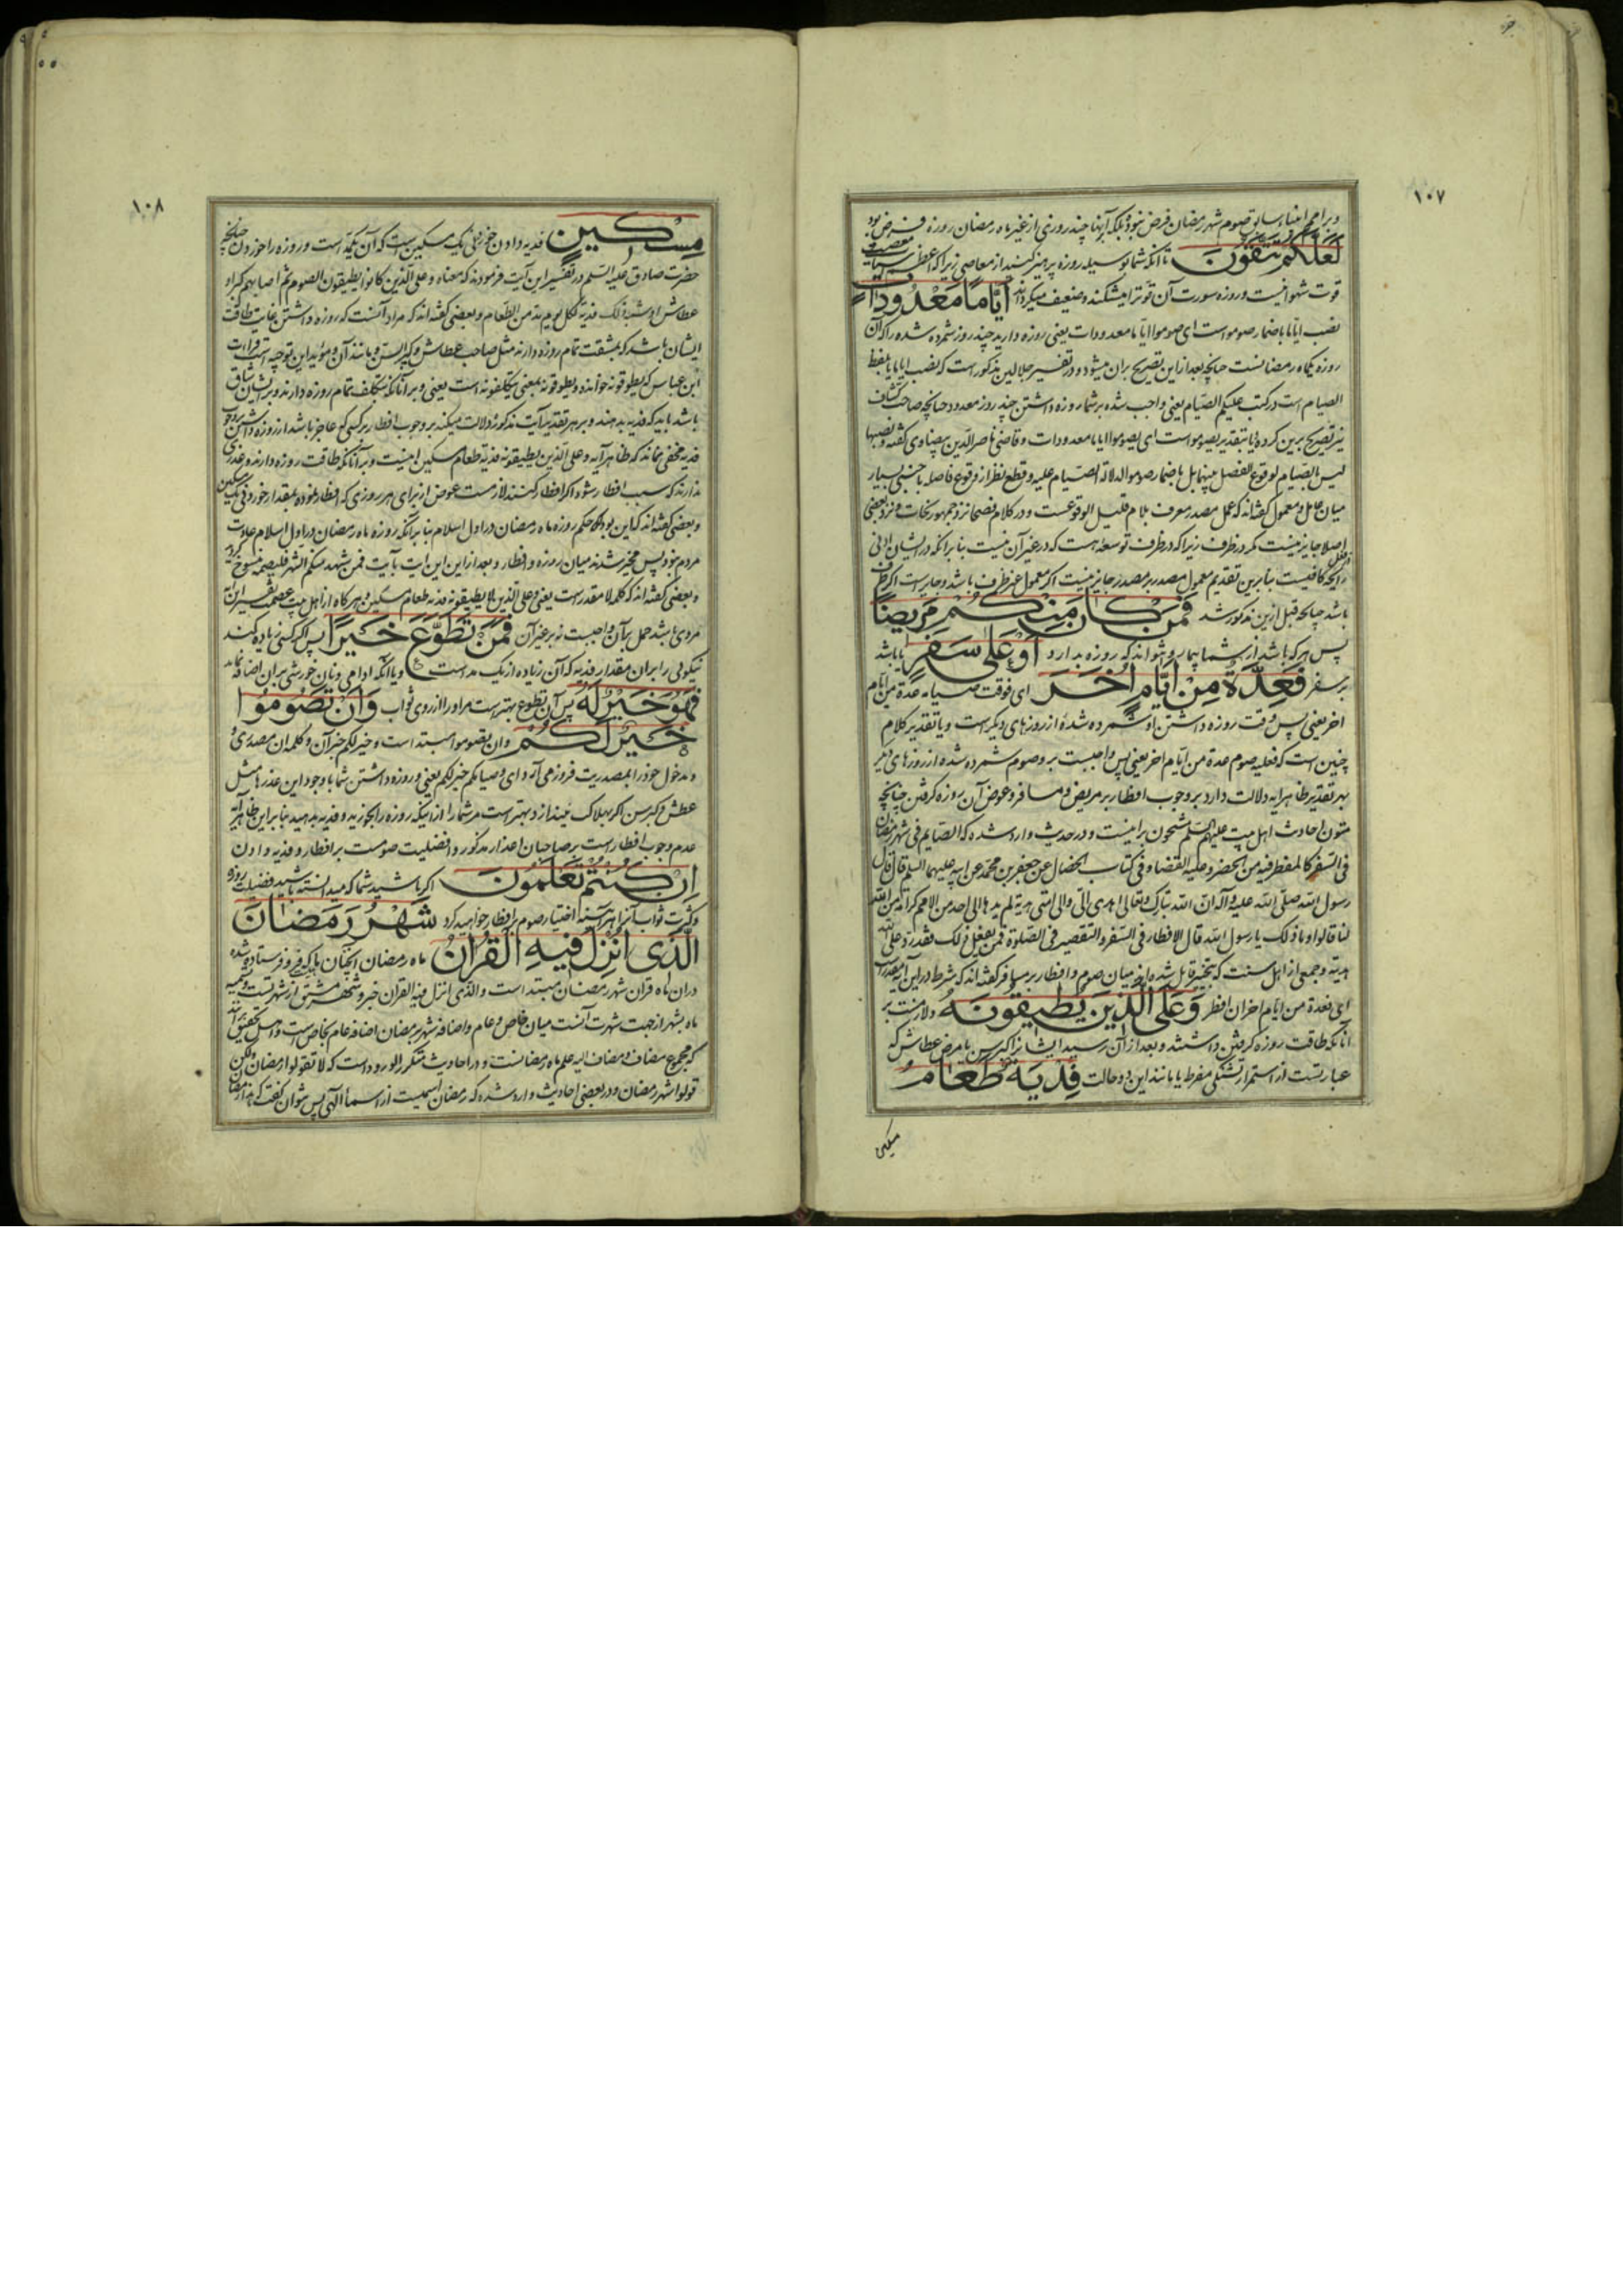 ۱۰۷
و بر امم انبیاء سابق صوم شهر رمضان فرض نبوده بلکه آنها چند روزی از غیر ماه رمضان روزه فرض بود
لَعَلَّكُمْ تَتَّقُونَ تا آنکه شما بوسیله روزه پرهیز کنید از معاصی زیرا که اعظم سیأت معصیت
قوت شهوانیست و روزه سورت آن قوت را میشکند و ضعیف میکرداند أَيَّامًا مَعْدُودَاتٍ
نصب ایاما باضمار صوموا است ای صوموا ایاما معدودات یعنی روزه دارید چند روز شمرده شده را که آن
روزه یکماه رمضانست چنانچه بعد از این تصریح بران میشود و در تفسیر جلالین مذکور است که نصب ایاما بلفظ
الصیام است در کتب علیکم الصیام یعنی واجب شده بر شما روزه داشتن چند روز معدود چنانچه صاحب کشاف
نیز تصریح برین کرده یا بتقدیر یصوموا است ای یصوموا ایاما معدودات و قاضی ناصر الدین بیضاوی گفته و نصبها
لیس بالصیام لوقوع الفصل بینهما بل باضمار صوموا لدلالة الصیام علیه و قطع نظر از وقوع فاصله باجنبی بسیار
میان عامل و معمول گفته‌اند که عمل مصدر معرف بلام قلیل الوقوعست و در کلام فصحا نزد جمهور نحات و نزد بعضی
اصلا جایز نیست مگر در ظرف زیرا که در ظرف توسعه است که در غیر آن نیست بنا بر آنکه در ایشان ادنی
رایحه کافیست بنابرین تقدیم معمول مصدر بر مصدر جایز نیست اگر معمول غیر ظرف باشد و جایز است اگر ظرف
باشد چنانچه قبل ازین مذکور شد فَمَنْ كَانَ مِنْكُمْ مَرِيضًا
پس هر که باشد از شما بیمار و نتواند که روزه بدارد أَوْ عَلَى سَفَرٍ یا باشد
بر سفر فَعِدَّةٌ مِنْ أَيَّامٍ أُخَرَ ای فوقت صیامه عدة من ایام
اخر یعنی پس وقت روزه داشتن او شمرده شده از روزهای دیگر است و یا تقدیر کلام
چنین است که فعلیه صوم عدة من ایام اخر یعنی پس واجبست بر او صوم شمرده شده از روزهای دیگر
بهر تقدیر ظاهر آیه دلالت دارد بر وجوب افطار بر مریض و مسافر و عوض آن روزه گرفتن چنانچه
متون احادیث اهل بیت علیهم السلم مشحون براینست و در حدیث وارد شده که الصایم فی شهر رمضان
فی السفر کالمفطر فیه من الحضر و علیه القضاء و فی کتاب الخصال عن جعفر بن محمد عن ابیه علیهما السلم قال قال
رسول الله صلی الله علیه و آله ان الله تبارک و تعالی اهدی الی و الی امتی هدیة لم یهدها الی احد من الامم کرامة من الله
لنا قالوا و ما ذلک یا رسول الله قال الافطار فی السفر و التقصیر فی الصلوة فمن لم یفعل ذلک فقد رد علی الله
هدیته و جمعی از اهل سنت که بتخییر قایل شده‌اند میان صوم و افطار بر مسافر گفته‌اند که شرط در این آیه مقدر است
ای فعدة من ایام اخر ان افطر وَعَلَى الَّذِينَ يُطِيقُونَهُ و لازمست بر
آنانکه طاقت روزه گرفتن داشتند و بعد از آن رسید ایشان را کبر سن یا مرض عطاش که
عبارتست از استمرار تشنگی مفرط یا مانند این دو حالت فِدْيَةٌ طَعَامُ
مسکین
۱۰۸
مِسْكِينٍ فدیه دادن خورانی یک مسکین است که آن یکمد است و روزه را خوردن چنانچه
حضرت صادق علیه السلم در تفسیر این آیت فرمودند که معناه و علی الذین کانوا یطیقون الصوم ثم اصابهم کبر او
عطاش او شبه ذلک فدیة لکل یوم مد من الطعام و بعضی گفته‌اند که مراد آنست که روزه داشتن غایت طاقت
ایشان باشد که بمشقت تمام روزه دارند مثل صاحب عطاش و کبر السن و مانند آن و مؤید این توجیه است قراءت
ابن عباس که یطوقونه خوانده و یطوقونه بمعنی یتکلفونه است یعنی و بر آنانکه بتکلف تمام روزه دارند و بر ایشان شاق
باشد باید که فدیه بدهند و بر هر تقدیر آیت مذکوره دلالت میکند بر وجوب افطار بر کسی که عاجز باشد از روزه داشتن و وجوب
فدیه مخفی نماند که ظاهر آیه و علی الذین یطیقونه فدیة طعام مسکین اینست و بر آنانکه طاقت روزه دارند و عذری
ندارند که سبب افطار شود اگر افطار کنند لازمست عوض از برای هر روزی که افطار نموده بمقدار خوردنی یک مسکین
و بعضی گفته‌اند که این بود حکم روزه ماه رمضان در اول اسلام بنا بر آنکه روزه ماه رمضان در اول اسلام عادت
مردم نبود پس مخیر شدند میان روزه و افطار و بعد از این این آیت بآیت فمن شهد منکم الشهر فلیصمه منسوخ گردید
و بعضی گفته‌اند که کلمه لا مقدر است یعنی و علی الذین لا یطیقونه فدیة طعام مسکین و هر گاه از اهل بیت عصمت تفسیر این آیت
مروی باشد حمل بر آن واجبست نه بر غیر آن فَمَنْ تَطَوَّعَ خَيْرًا پس اگر کسی زیاده کند
نیکوئی را بر ان مقدار فدیه که آن زیاده از یک مد است و یا آنکه ادامی و نان خورشی بر ان اضافه نماید
فَهُوَ خَيْرٌ لَهُ پس آن تطوع بهتر است مر او را از روی ثواب وَأَنْ تَصُومُوا
خَيْرٌ لَكُمْ و ان تصوموا مبتدا است و خیر لکم خبر آن و کلمه ان مصدری
و مدخول خود را بمصدریت فرو می‌آرد ای و صیامکم خیر لکم یعنی و روزه داشتن شما با وجود این عذرها مثل
عطش و کبر سن اگر بهلاک نیندازد بهتر است مر شما را از اینکه روزه را بخورید و فدیه بدهید بنا بر این ظاهر آیه
عدم وجوب افطار است بر صاحبان اعذار مذکور و افضلیت صومست بر افطار و فدیه دادن
إِنْ كُنْتُمْ تَعْلَمُونَ اگر باشید شما که میدانسته باشید فضیلت روزه
و کثرت ثواب آنرا هر آینه اختیار صوم بر افطار خواهید کرد شَهْرُ رَمَضَانَ
الَّذِي أُنْزِلَ فِيهِ الْقُرْآنُ ماه رمضان آنچنان ماهیست که فرو فرستاده شده
در آن ماه قران شهر رمضان مبتدا است و الذی انزل فیه القران خبر و شهر مشتق از شهرتست و تسمیه
ماه بشهر از جهت شهرت آنست میان خاص و عام و اضافه شهر برمضان اضافه عام بخاص است و اصل تحقیق آنند
که مجموع مضاف و مضاف الیه علم ماه رمضانست و در احادیث متکرر الورود است که لا تقولوا رمضان و لکن
قولوا شهر رمضان و در بعضی احادیث وارد شده که رمضان اسمیست از اسماء الهی پس نتوان گفت که